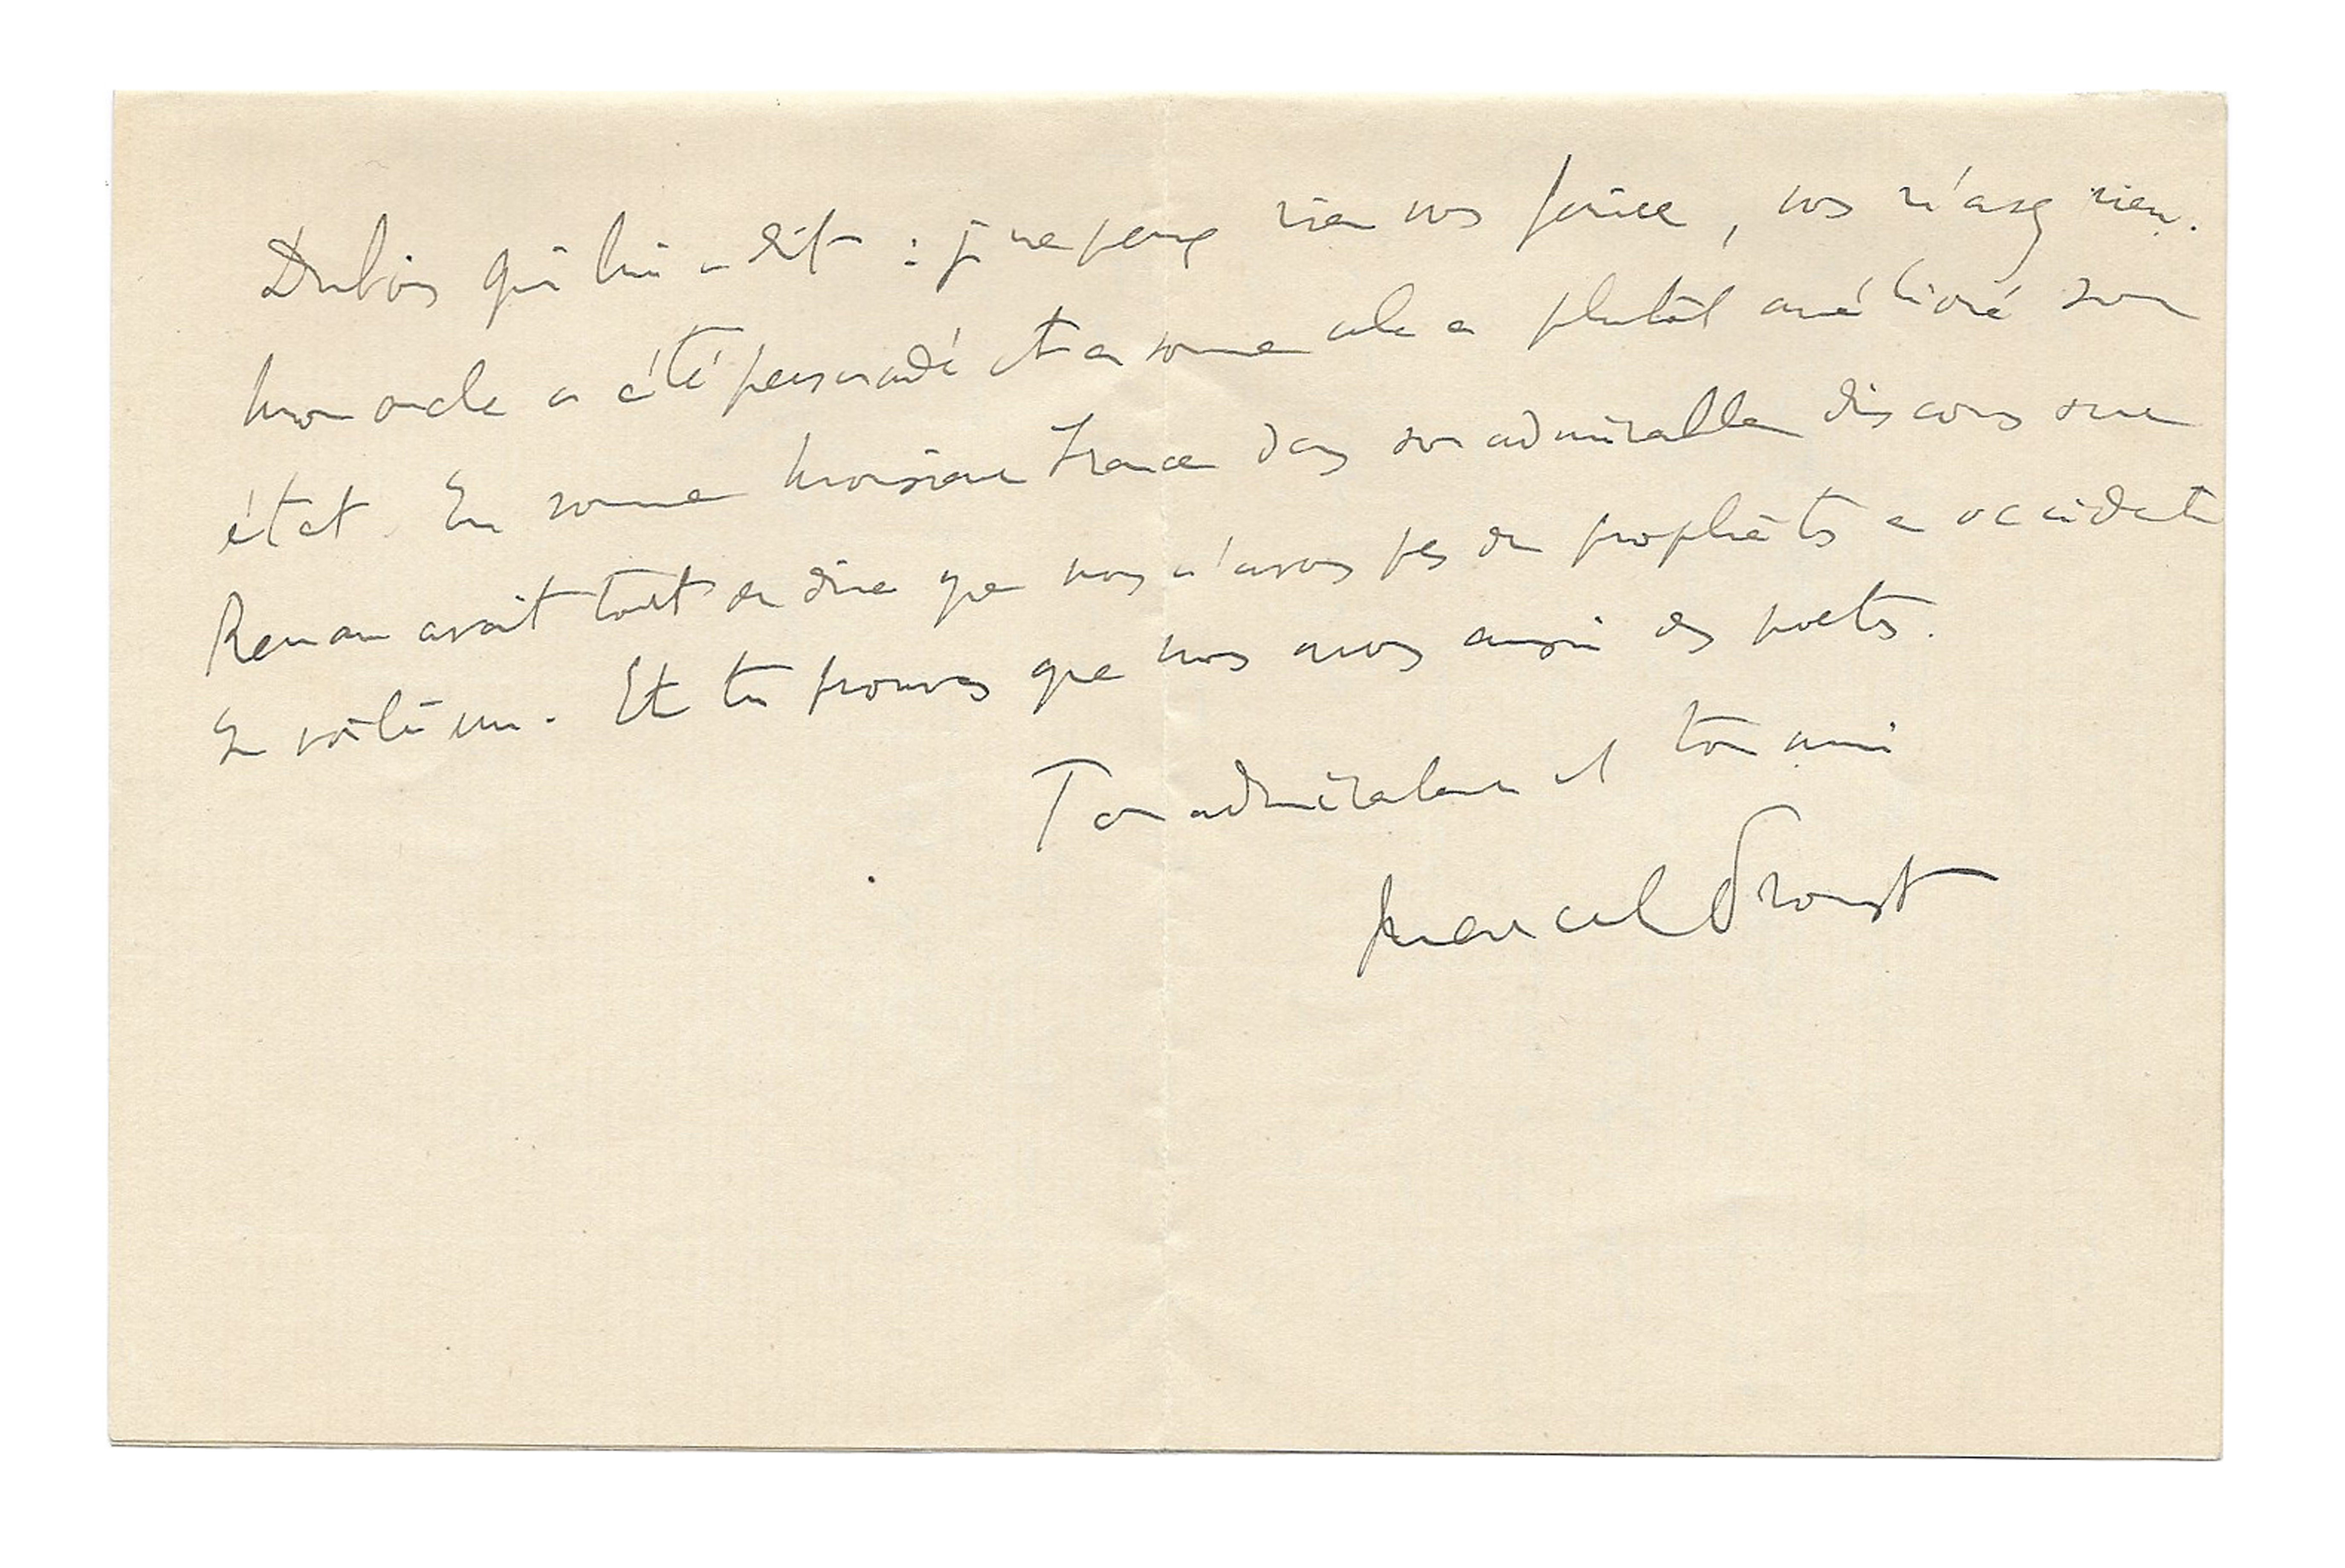 Dubois qui lui a dit : je ne peux rien vous faire, vous n'avez rien.
Mon oncle a été persuadé et en somme cela a plutôt amélioré son
état. En somme Monsieur France dans son admirable discours sur
Renan avait tort de dire que nous n'avons pas de prophètes en occident
En voilà un. Et tu prouves que nous avons aussi des poetes.
Ton admirateur et ton ami
Marcel Proust